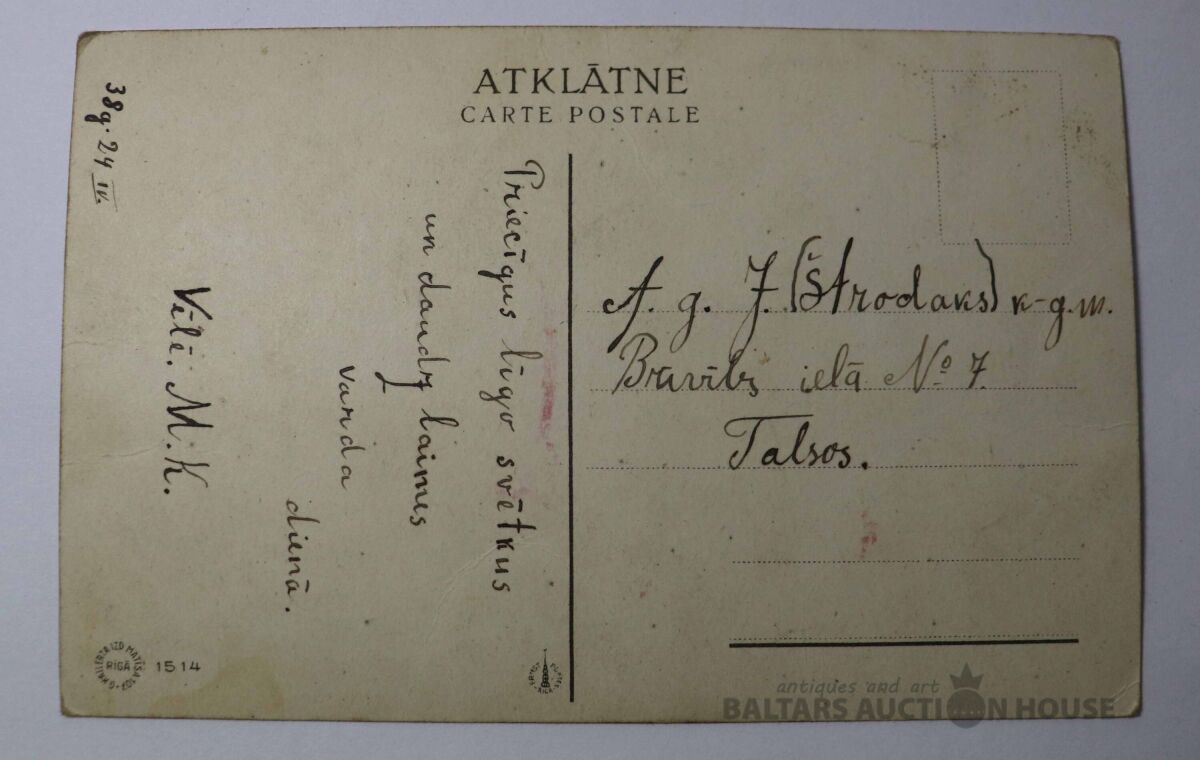 ATKLĀTNE
CARTE POSTALE
38g. 24 IV.
Priecīgus līgo svētkus
un daudz laimes
varda
dienā.
Vēlē. M. K.
A. g. J. (Štrodaks) k-g.m.
Brīvībs ielā № 7.
Talsos.
RIGĀ
1514
antiques and art
BALTARS AUCTION HOUSE